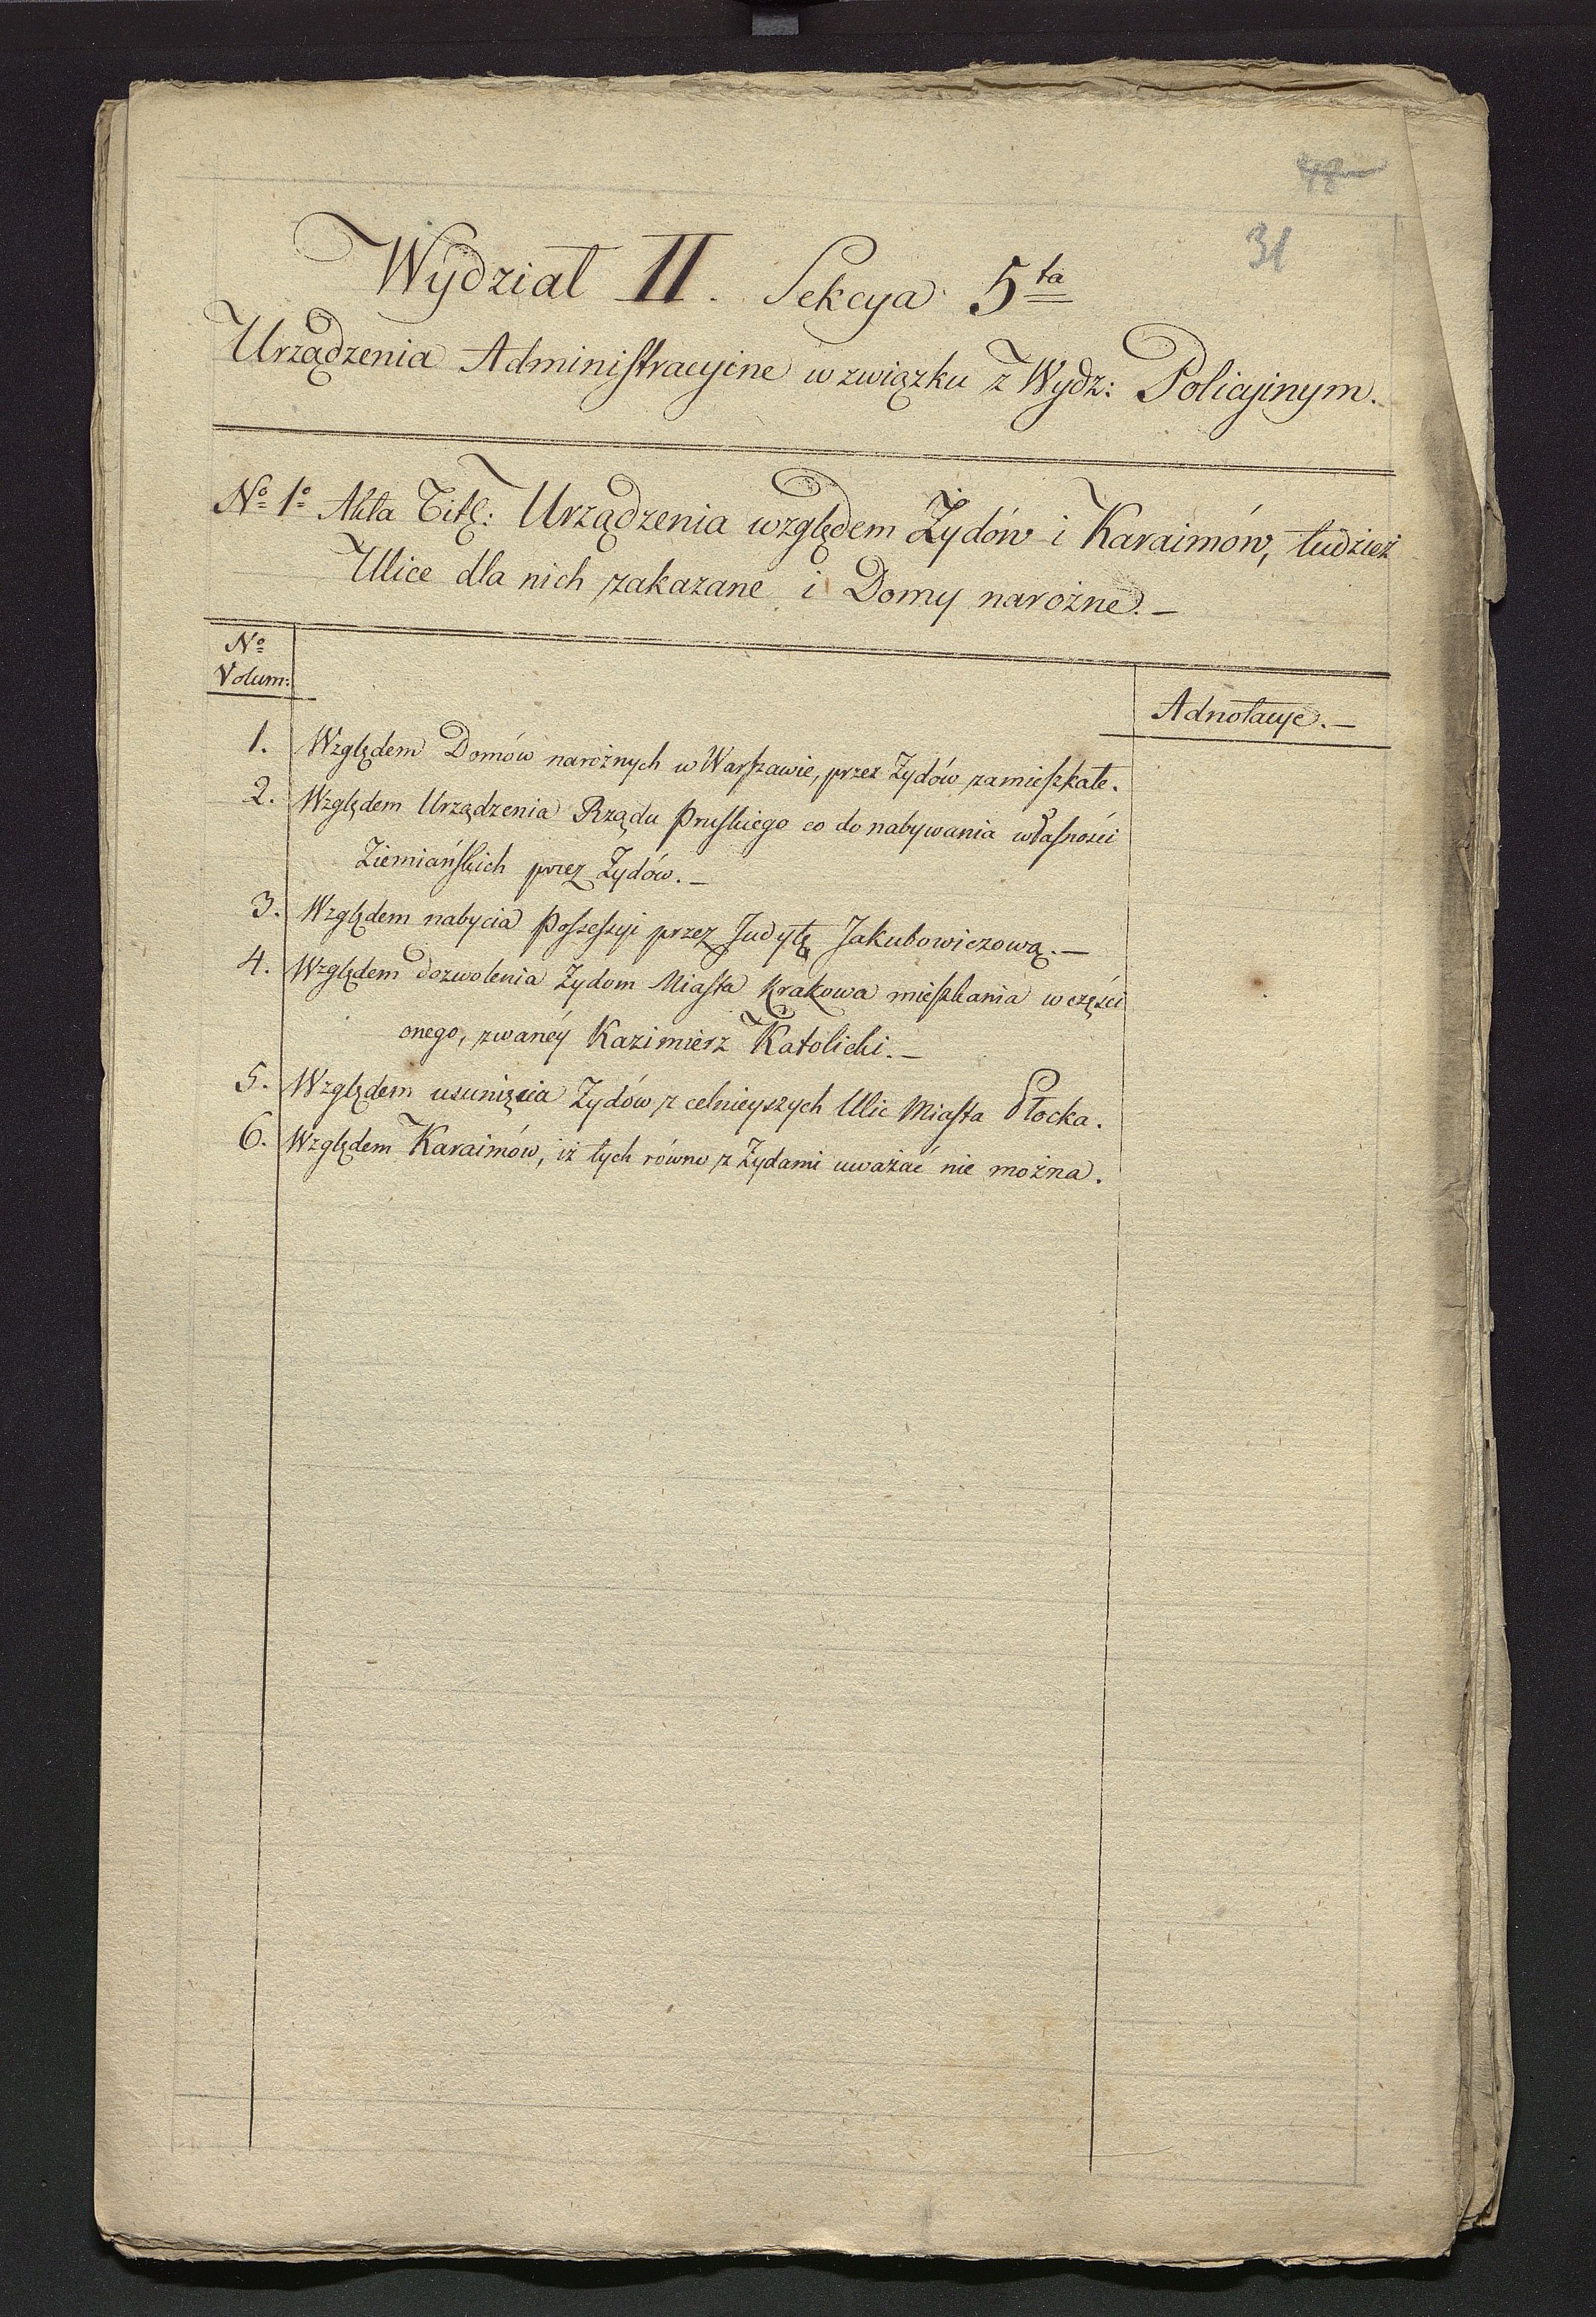 48
31
Wydział II. Sekcya 5ta
Urządzenia Administracyine w związku z Wydz: Policyinym.
No 1o Akta Titl: Urządzenia względem Żydów i Karaimów, tudzież
Ulice dla nich zakazane i Domy narożne.-
No
Volum:
Adnotacye.-
1. Względem Domów narożnych w Warszawie, przez Żydów zamieszkałe.
2. Względem Urządzenia Rządu Pruskiego co do nabywania własności
Ziemiańskich przez Żydów.-
3. Względem nabycia Possessyi przez Judytę Jakubowiczową.-
4. Względem dozwolenia Żydom Miasta Krakowa mieszkania w części
onego, zwanéy Kazimierz Katolicki.-
5. Względem usunięcia Żydów z celnieyszych Ulic Miasta Płocka.
6. Względem Karaimów, iż tych równo z Żydami uważać nie można.